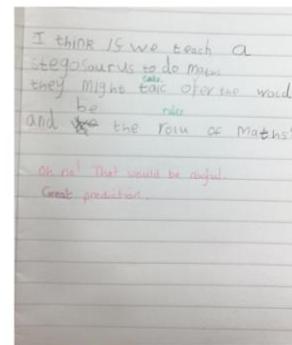 I think IS we teach a
stegosaurus to do maths
take
they might taic ofer the world
be ruler
and the rolu of Maths
Oh no! That would be awful.
Great prediction.